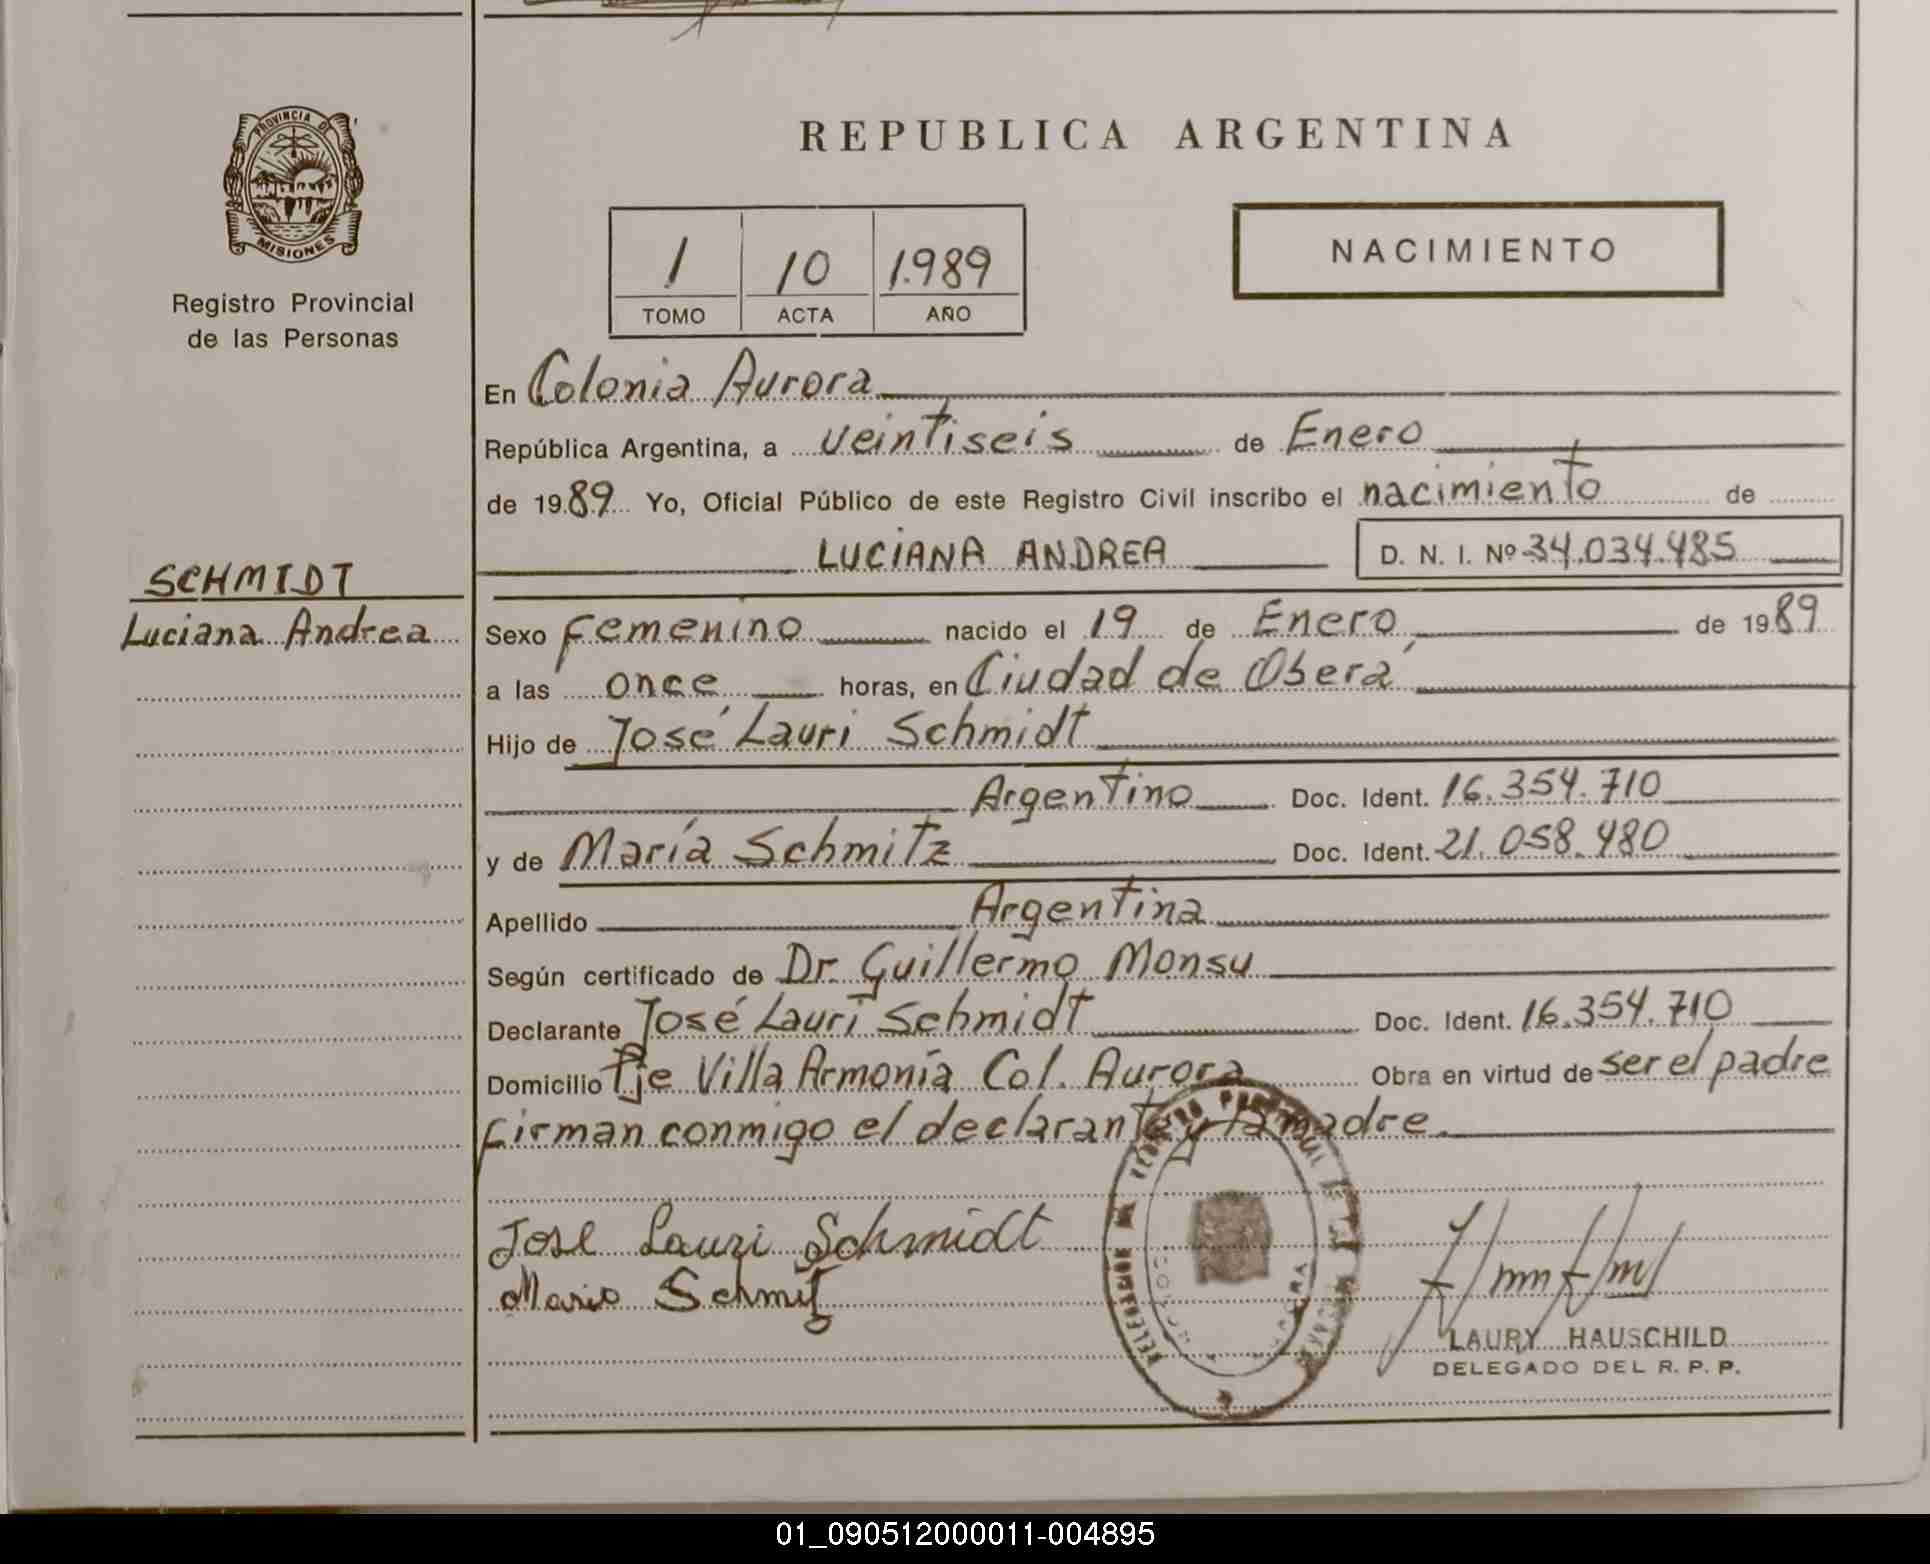 REPUBLICA ARGENTINA
PROVINCIA DE
MISIONES
Registro Provincial
de las Personas
1 10 1.989
TOMO ACTA AÑO
NACIMIENTO
En Colonia Aurora
República Argentina, a veintiseis de Enero
de 1989 Yo, Oficial Público de este Registro Civil inscribo el nacimiento de
LUCIANA ANDREA D. N. I. Nº 34.034.485
SCHMIDT
Luciana Andrea
Sexo Femenino nacido el 19 de Enero de 1989
a las once horas, en Ciudad de Oberá
Hijo de José Lauri Schmidt
Argentino Doc. Ident. 16.354.710
y de María Schmitz Doc. Ident. 21.058.480
Apellido Argentina
Según certificado de Dr. Guillermo Monsu
Declarante José Lauri Schmidt Doc. Ident. 16.354.710
Domicilio Pje Villa Armonía Col. Aurora Obra en virtud de ser el padre
Firman conmigo el declarante y la madre.
Jose Lauri Schmidt
Maria Schmitz
LAURY HAUSCHILD
DELEGADO DEL R. P. P.
01_090512000011-004895